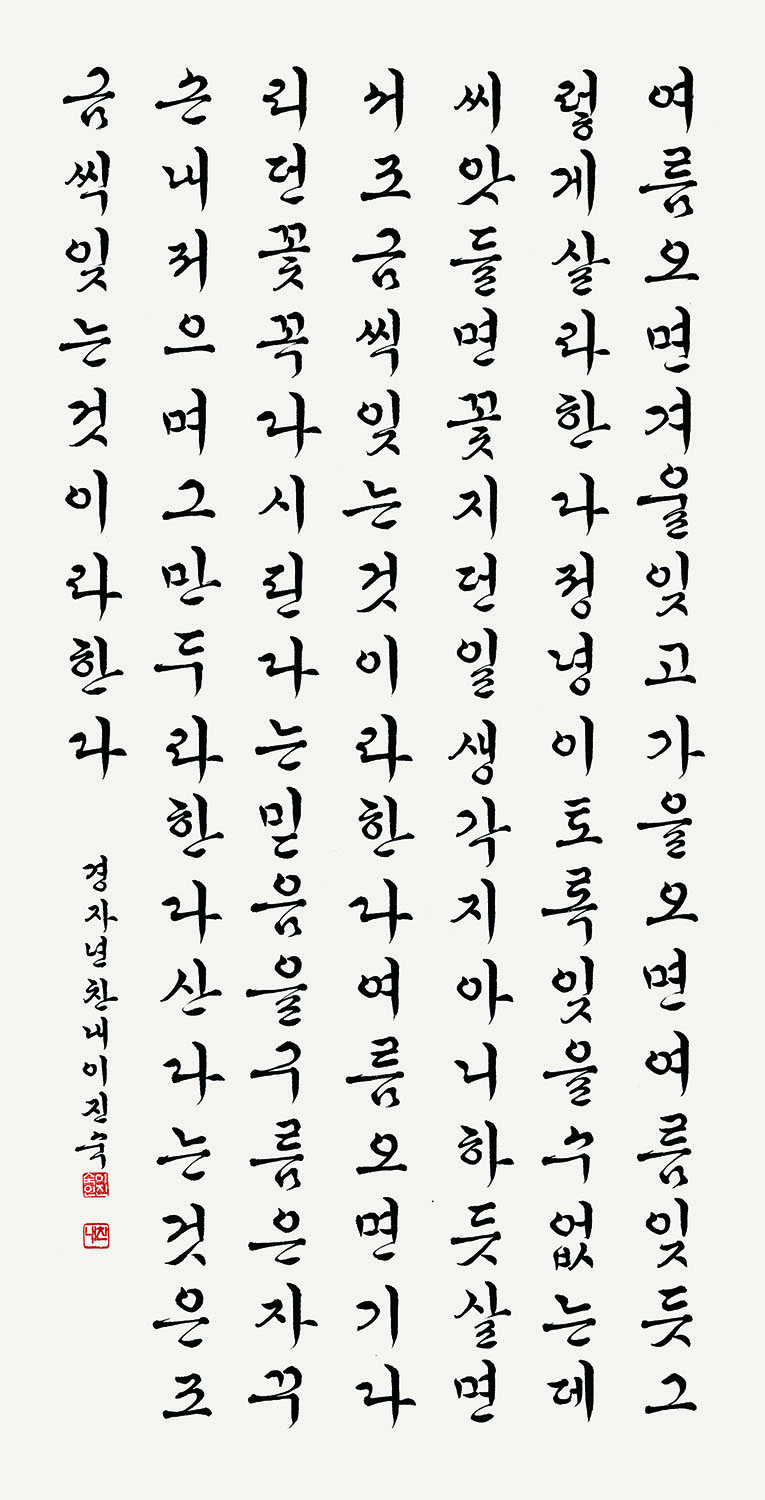 여름오면겨울잊고가을오면여름잊듯그
렇게살라한다정녕이토록잊을수없는데
씨앗들면꽃지던일생각지아니하듯살면
서조금씩잊는것이라한다여름오면기다
리던꽃꼭다시핀다는믿음을구름은자꾸
손내저으며그만두라한다산다는것은조
금씩잊는것이라한다
경자년찬내이진숙
이진숙인
찬내